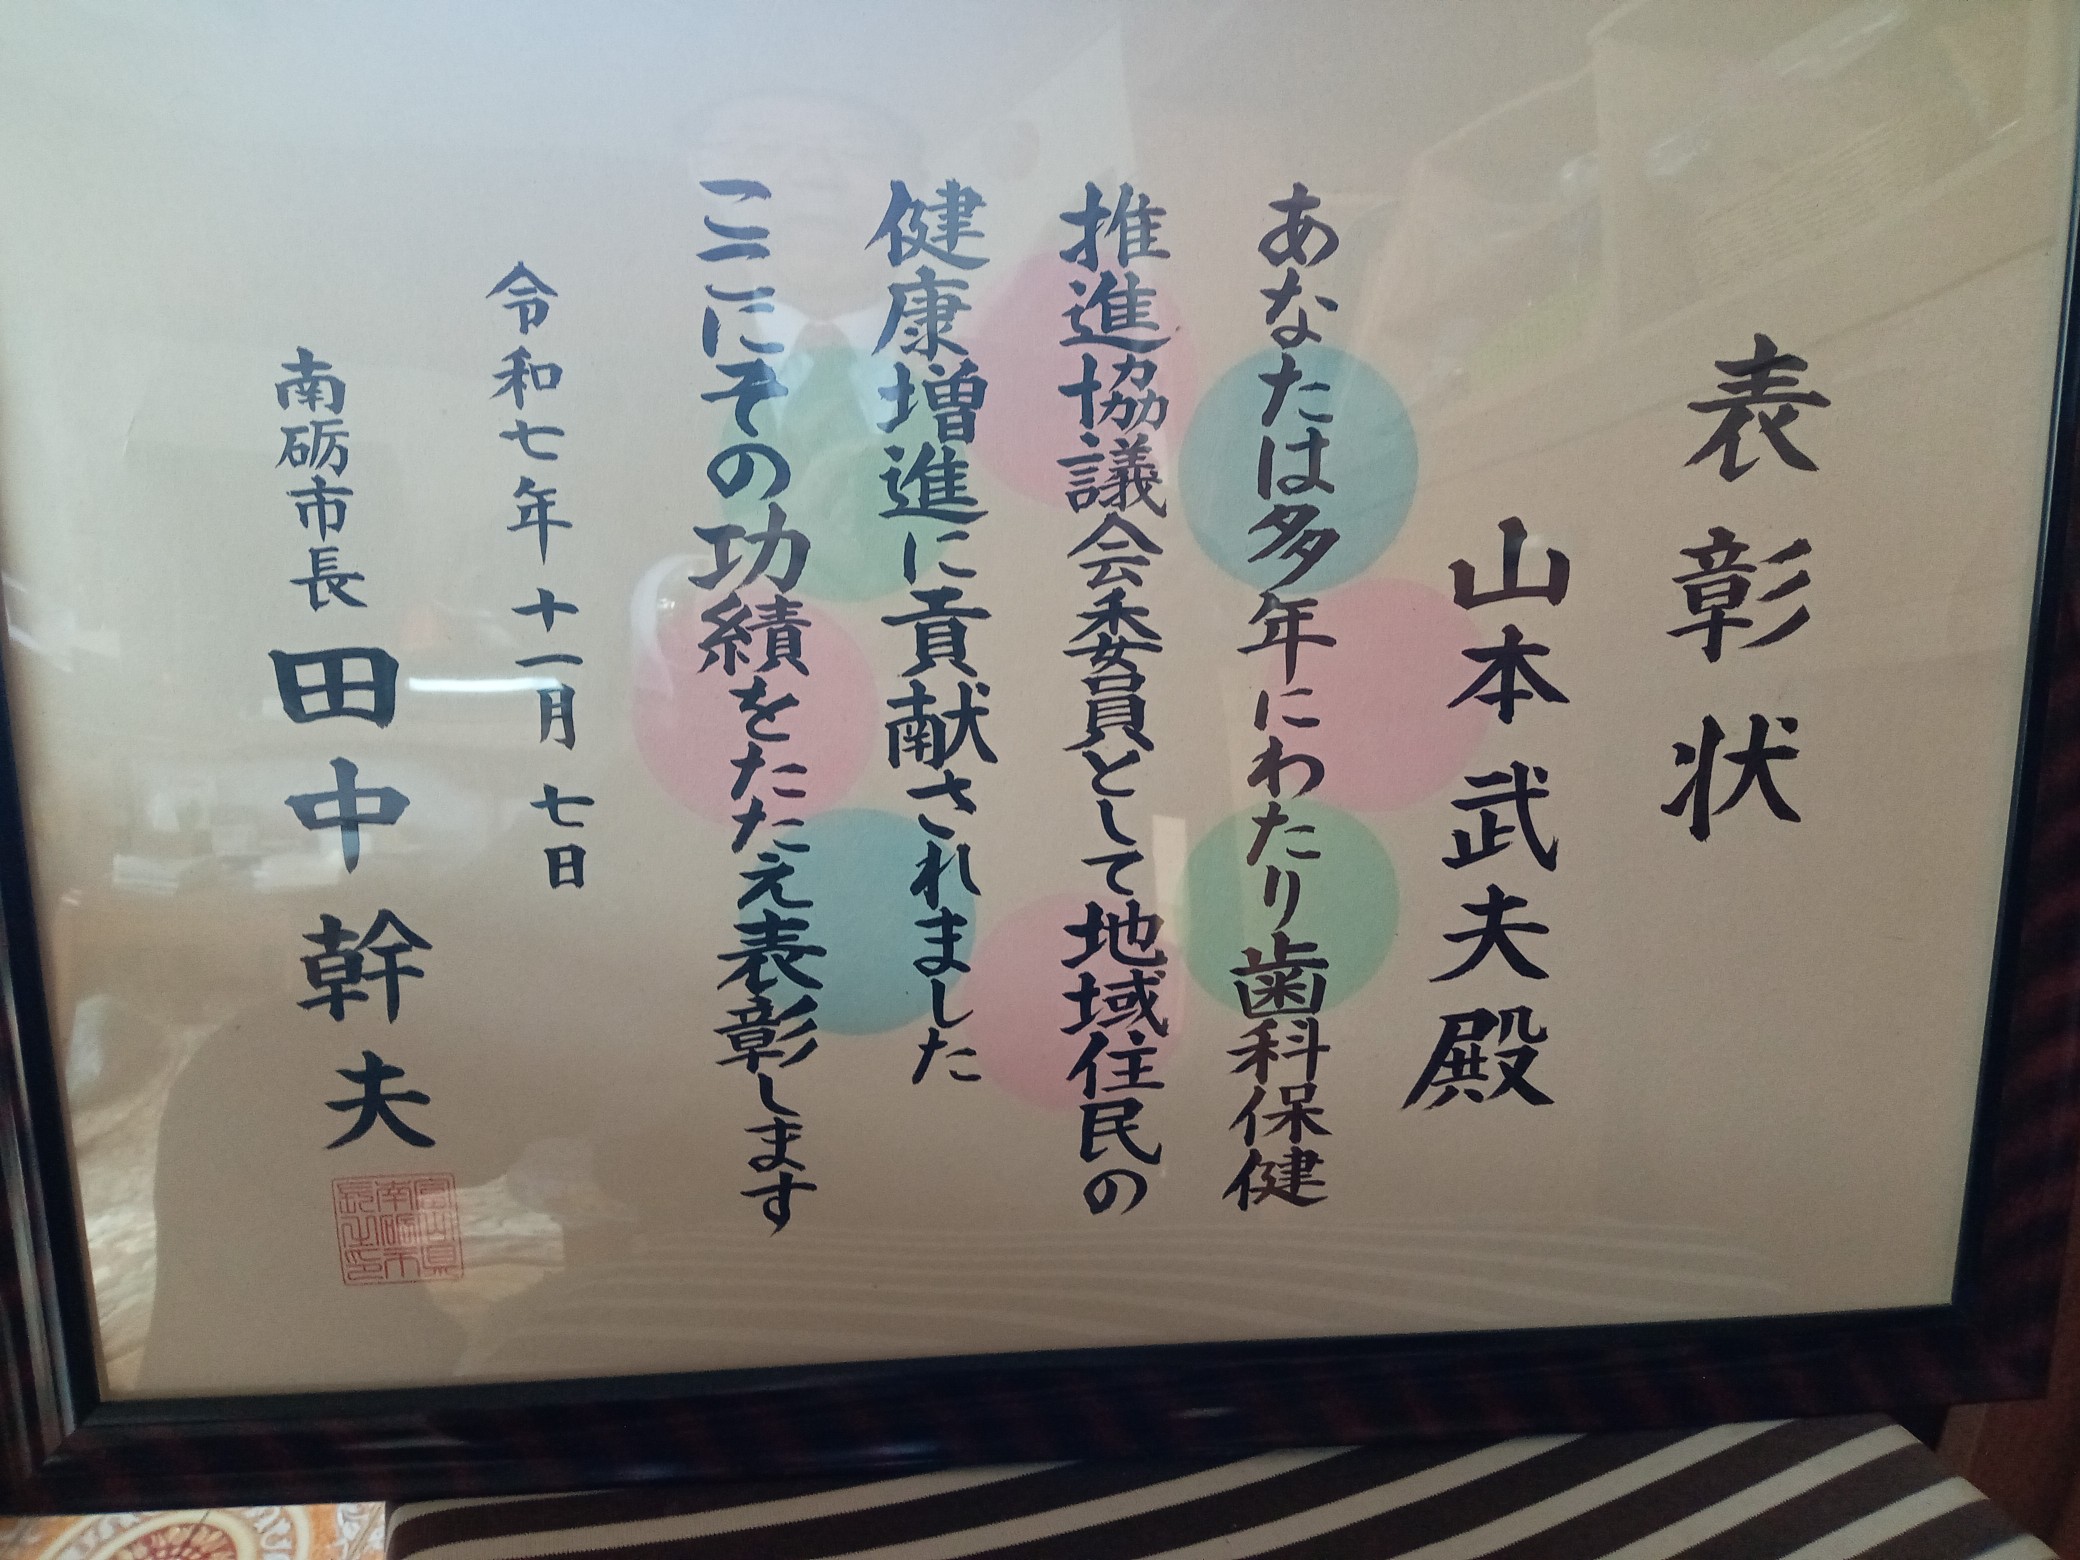 表彰状
山本武夫殿
あなたは多年にわたり歯科保健
推進協議会委員として地域住民の
健康増進に貢献されました
ここにその功績をたたえ表彰します
令和七年十一月七日
南砺市長 田中幹夫
富山県
南砺市
長之印